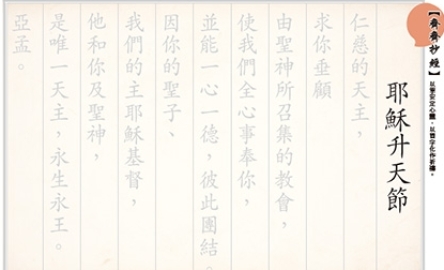 【齊齊抄經】
以筆安定心靈，以書字化作祈禱。
耶穌升天節
仁慈的天主，
求你垂顧
由聖神所召集的教會，
使我們全心事奉你，
並能一心一德，彼此團結。
因你的聖子、
我們的主耶穌基督，
他和你及聖神，
是唯一天主，永生永王。
亞孟。